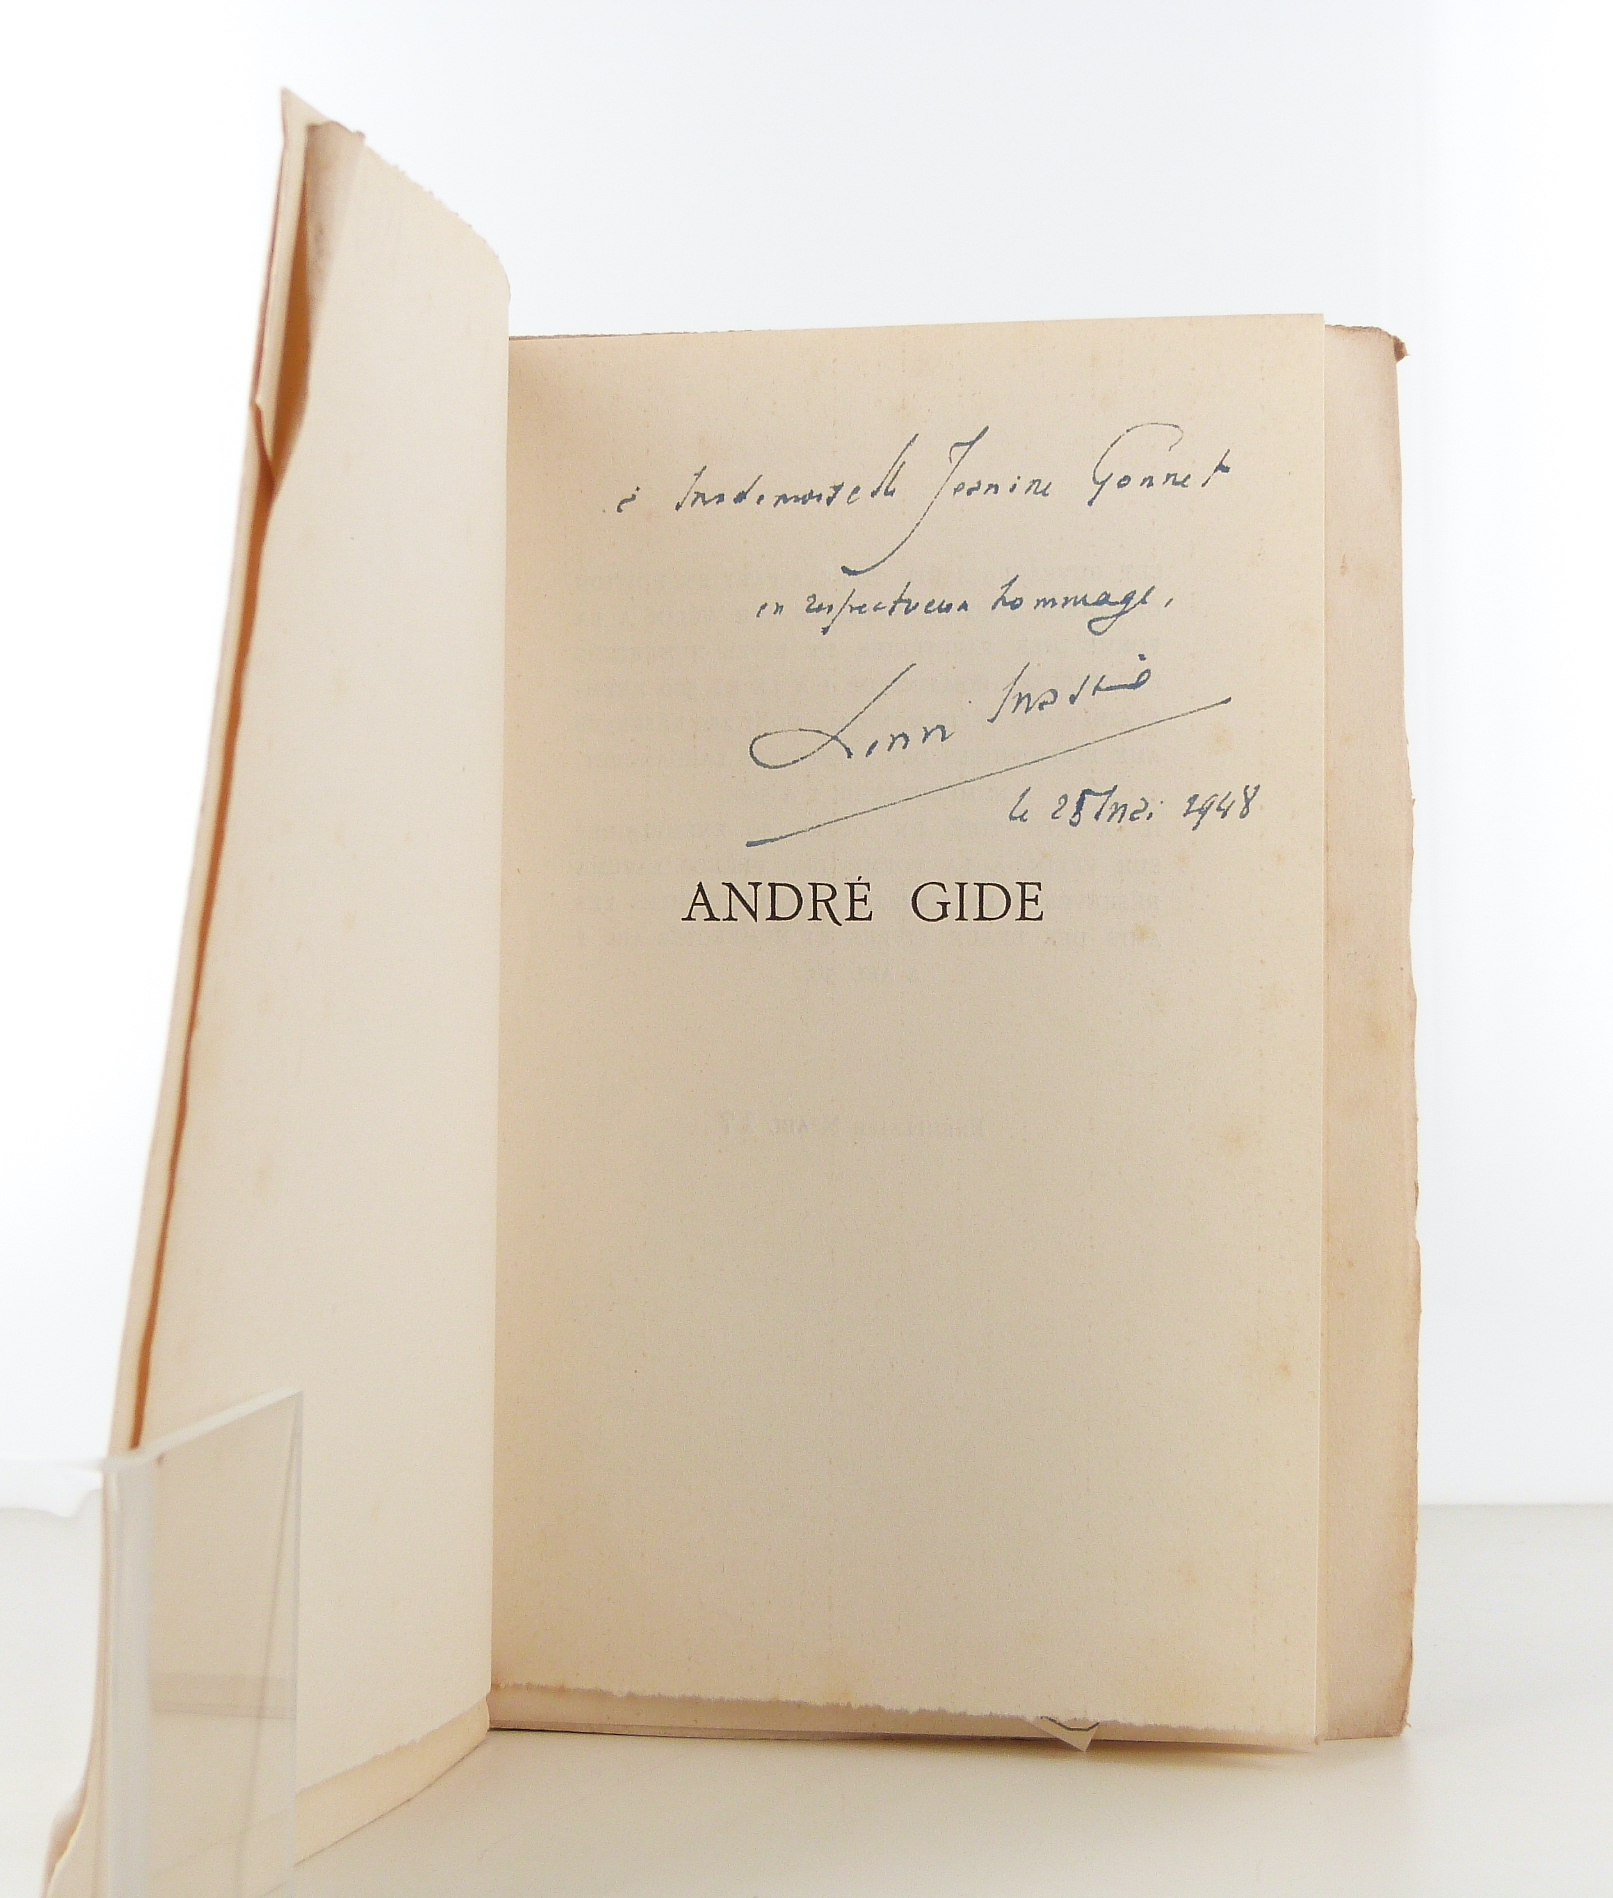 à Mademoiselle Jeanine Gonnet
en respectueux hommage,
le 25 Mai 1948
ANDRÉ GIDE